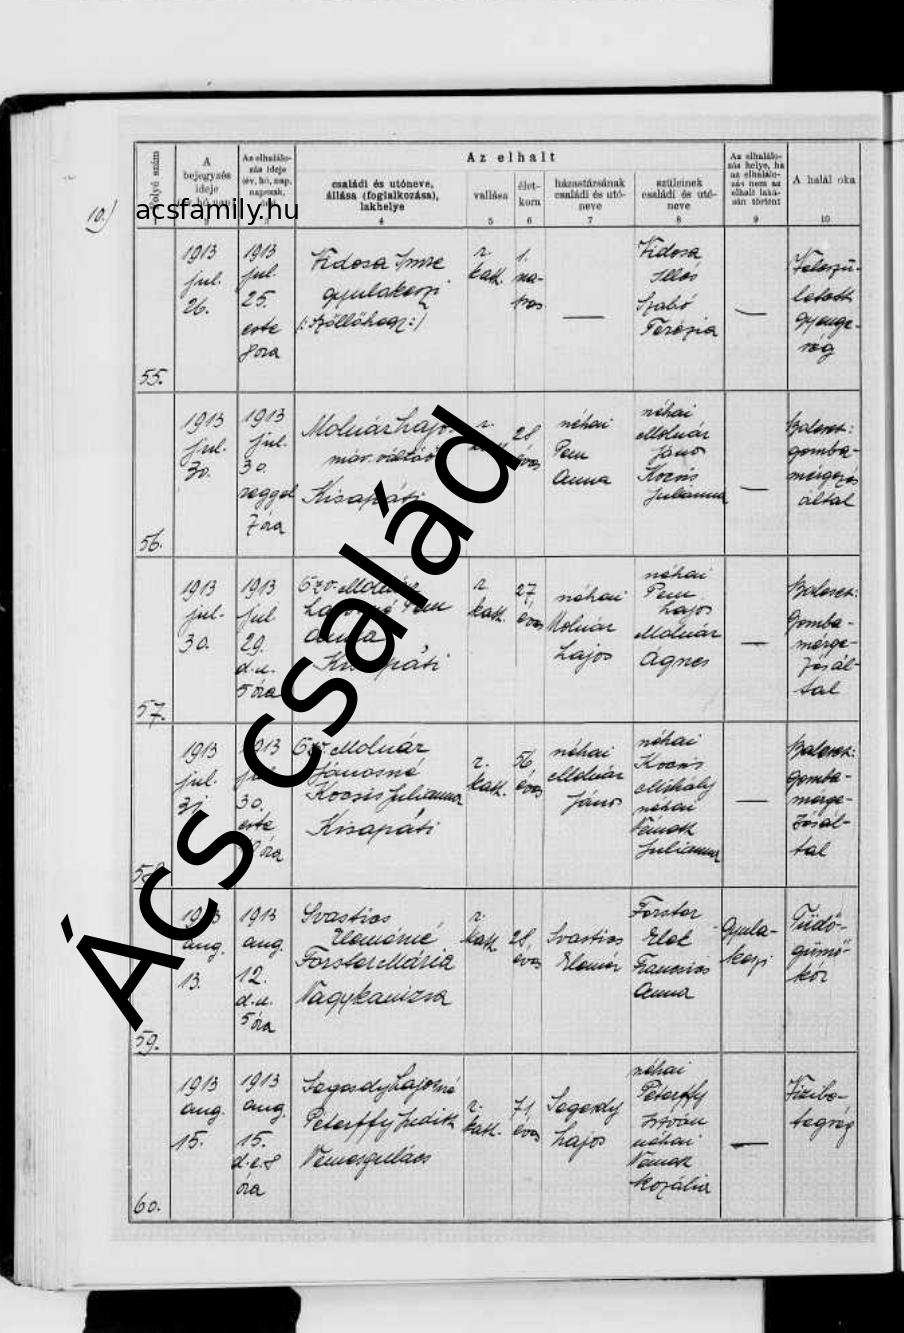 Az elhalt
Folyó szám
A
bejegyzés
ideje
Az elhalálo-
zás ideje
(év, hó, nap,
napszak,
családi és utóneve,
állása (foglalkozása),
lakhelye
vallása
élet-
kora
házastársának
családi és utó-
neve
szüleinek
családi és utó-
neve
Az elhalálo-
zás helye, ha
az elhalálo-
zás nem az
elhalt laká-
sán történt
A halál oka
4 5 6 7 8 9 10
10.)
acsfamily.hu
55.
1913
jul.
26.
1913
jul.
25.
este
8 óra
Vidosa Imre
gyulakeszi
(:Szőllőhegy:)
r.
kath.
1.
na-
pos
Vidosa
Illés
Szabó
Terézia
Veleszü-
letett
gyenge-
ség
56.
1913
jul.
30.
1913
jul.
30.
reggel
7 óra
Molnár Lajos
máv. váltóőr
Kisapáti
r.
28
éves
néhai
Pem
Anna
néhai
Molnár
János
Kocsis
Julianna
Baleset:
gomba-
mérgezés
által
57.
1913
jul.
30.
1913
jul
29.
d.u.
5 óra
Özv. Molnár
Lajosné Pem
Anna
Kisapáti
r.
kath.
27
éves
néhai
Molnár
Lajos
néhai
Pem
Lajos
Molnár
Ágnes
Baleset:
Gomba-
mérge-
zés ál-
tal
58.
1913
jul.
31
1913
jul.
30.
este
óra
Özv. Molnár
Jánosné
Kocsis Julianna
Kisapáti
r.
kath.
56
éves
néhai
Molnár
János
néhai
Kocsis
Mihály
néhai
Németh
Julianna
Baleset:
gomba-
mérge-
zés ál-
tal
59.
1913
aug.
13.
1913
aug.
12.
d.u.
5 óra
Svastics
Elemérné
Forster Mária
Nagykanizsa
r.
kath.
28.
éves
Svastics
Elemér
Forster
Elek
Francsics
Anna
Gyula-
keszi
Tüdő-
gümő-
kór
60.
1913
aug.
15.
1913
aug.
15.
d.e. 8
óra
Segesdy Lajosné
Peterffy Judith
Nemesgulács
r.
kath.
71
éves
Segesdy
Lajos
néhai
Peterffy
István
néhai
Németh
Rozália
Vizibe-
tegség
Ács család